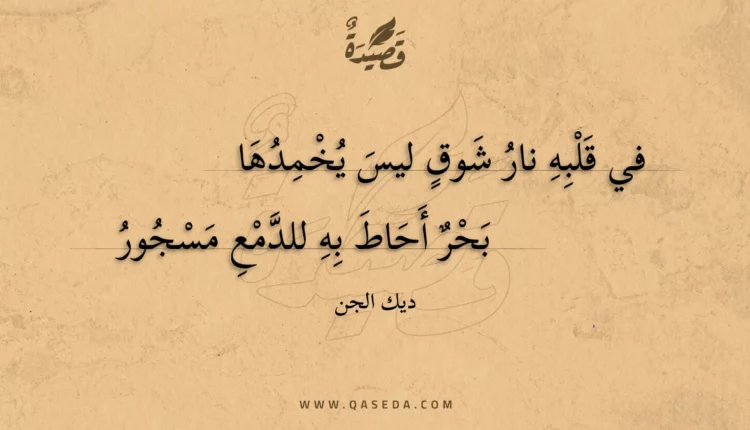 قَصِيدَةٌ
في قَلْبِهِ نارُ شَوقٍ ليسَ يُخْمِدُهَا
بَحْرٌ أَحَاطَ بِهِ للدَّمْعِ مَسْجُورُ
ديك الجن
WWW.QASEDA.COM